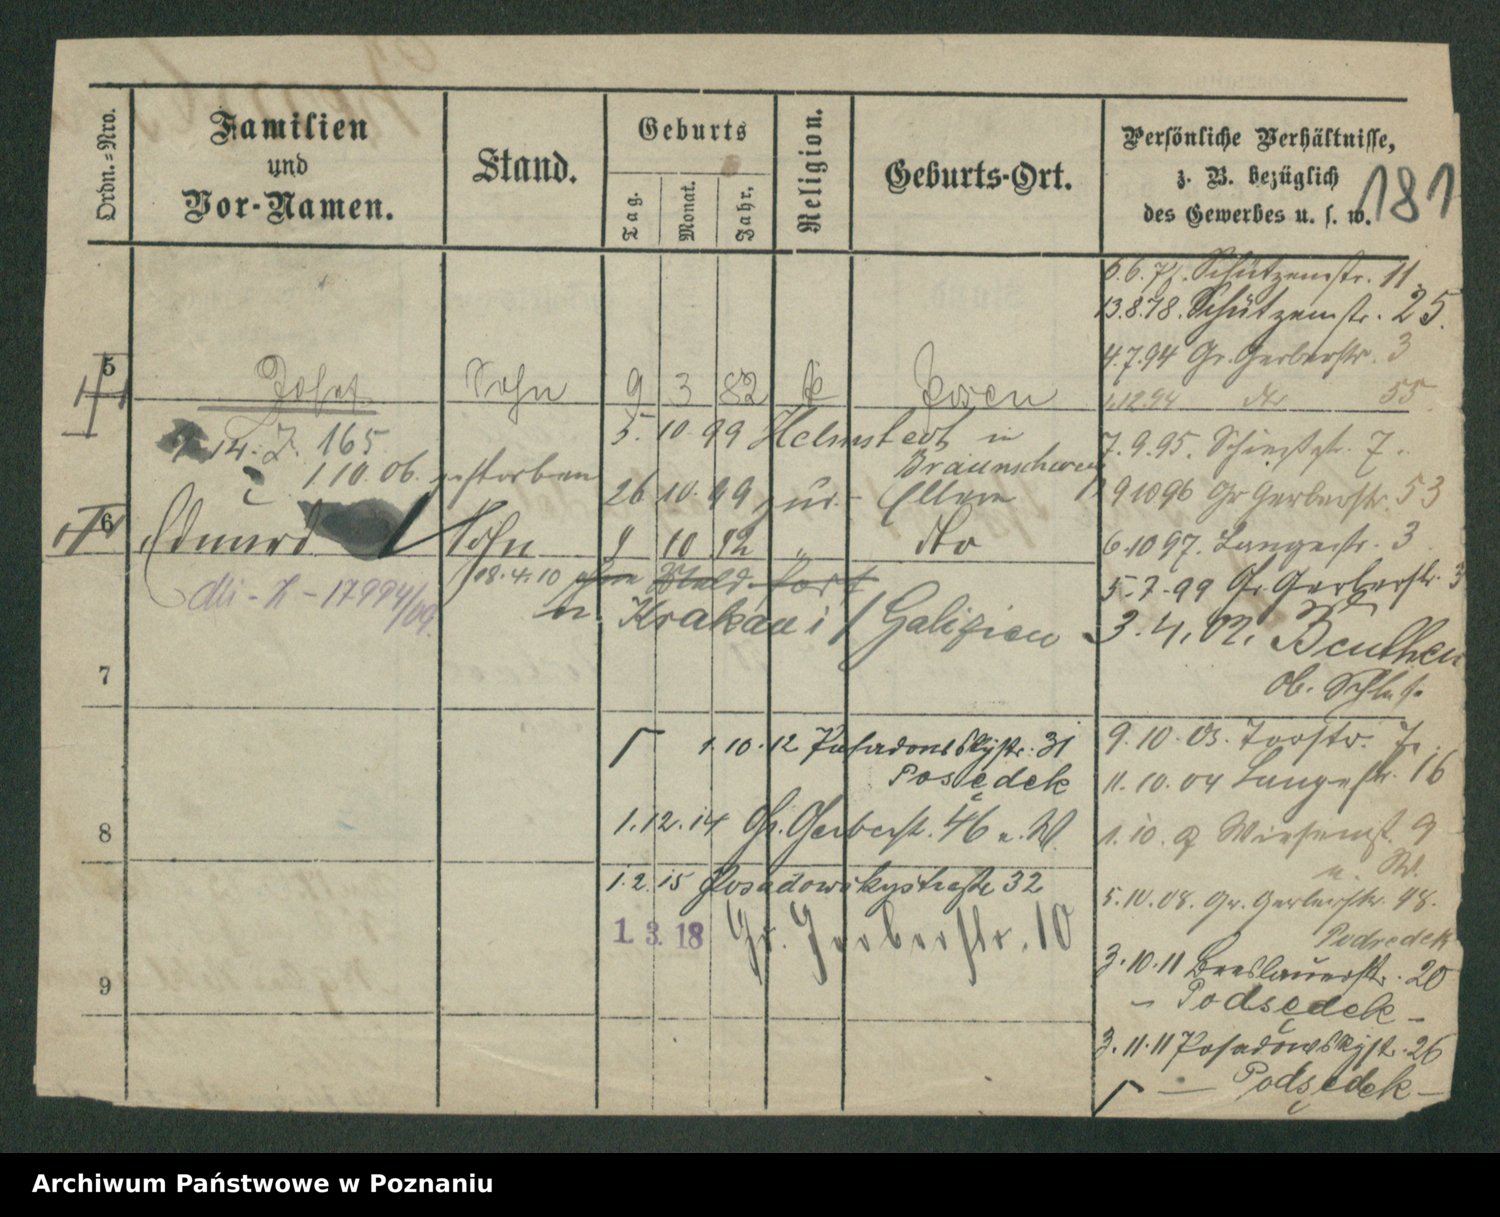 Ordn.=Nro.
Familien
und
Vor-Namen.
Stand.
Geburts
Tag.
Monat.
Jahr.
Religion.
Geburts-Ort.
Persönliche Verhältnisse,
z. B. bezüglich
des Gewerbes u. s. w.
181
Schützenstr. 11
13.8.78. Schützenstr. 25.
4.7.94 Gr. Gerberstr. 3
5 Josef Sohn 9 3 82 k Posen
1.12.94 do 55.
14. Z. 165
5. 10 99 Helmstedt in
Braunschweig
7.9.95. Schießstr. 7.
1.10.06. gestorben
26 10. 99 zur. Eltern
9 10 96 Gr Gerberstr. 53
6 Eduard Sohn 9 10 92 " dto
6.10 97. Langestr. 3
18.4.10 ohne
5.7.99 Gr. Gerberstr. 3
dli - Z - 17994/09.
n. Krakau i/Galizien
3.4.02. Beuthen
ob. Schles.
7
1.10.12 Posadowskystr. 31
Posędek
9.10.03. Torstr.
11.10.04 Langestr. 16
8
1.12.14 Gr. Gerberstr. 46 u. W.
1.10. Wiesenstr. 9
u. W.
1.2.15 Posadowskystraße 32
5.10.08. Gr. Gerberstr. 48.
1. 3. 18 Gr. Gerberstr. 10
Podredek
9
3.10.11 Breslauerstr. 20
- Podsędek -
3.11.11 Posadowskystr. 26
- Podsędek -
Archiwum Państwowe w Poznaniu